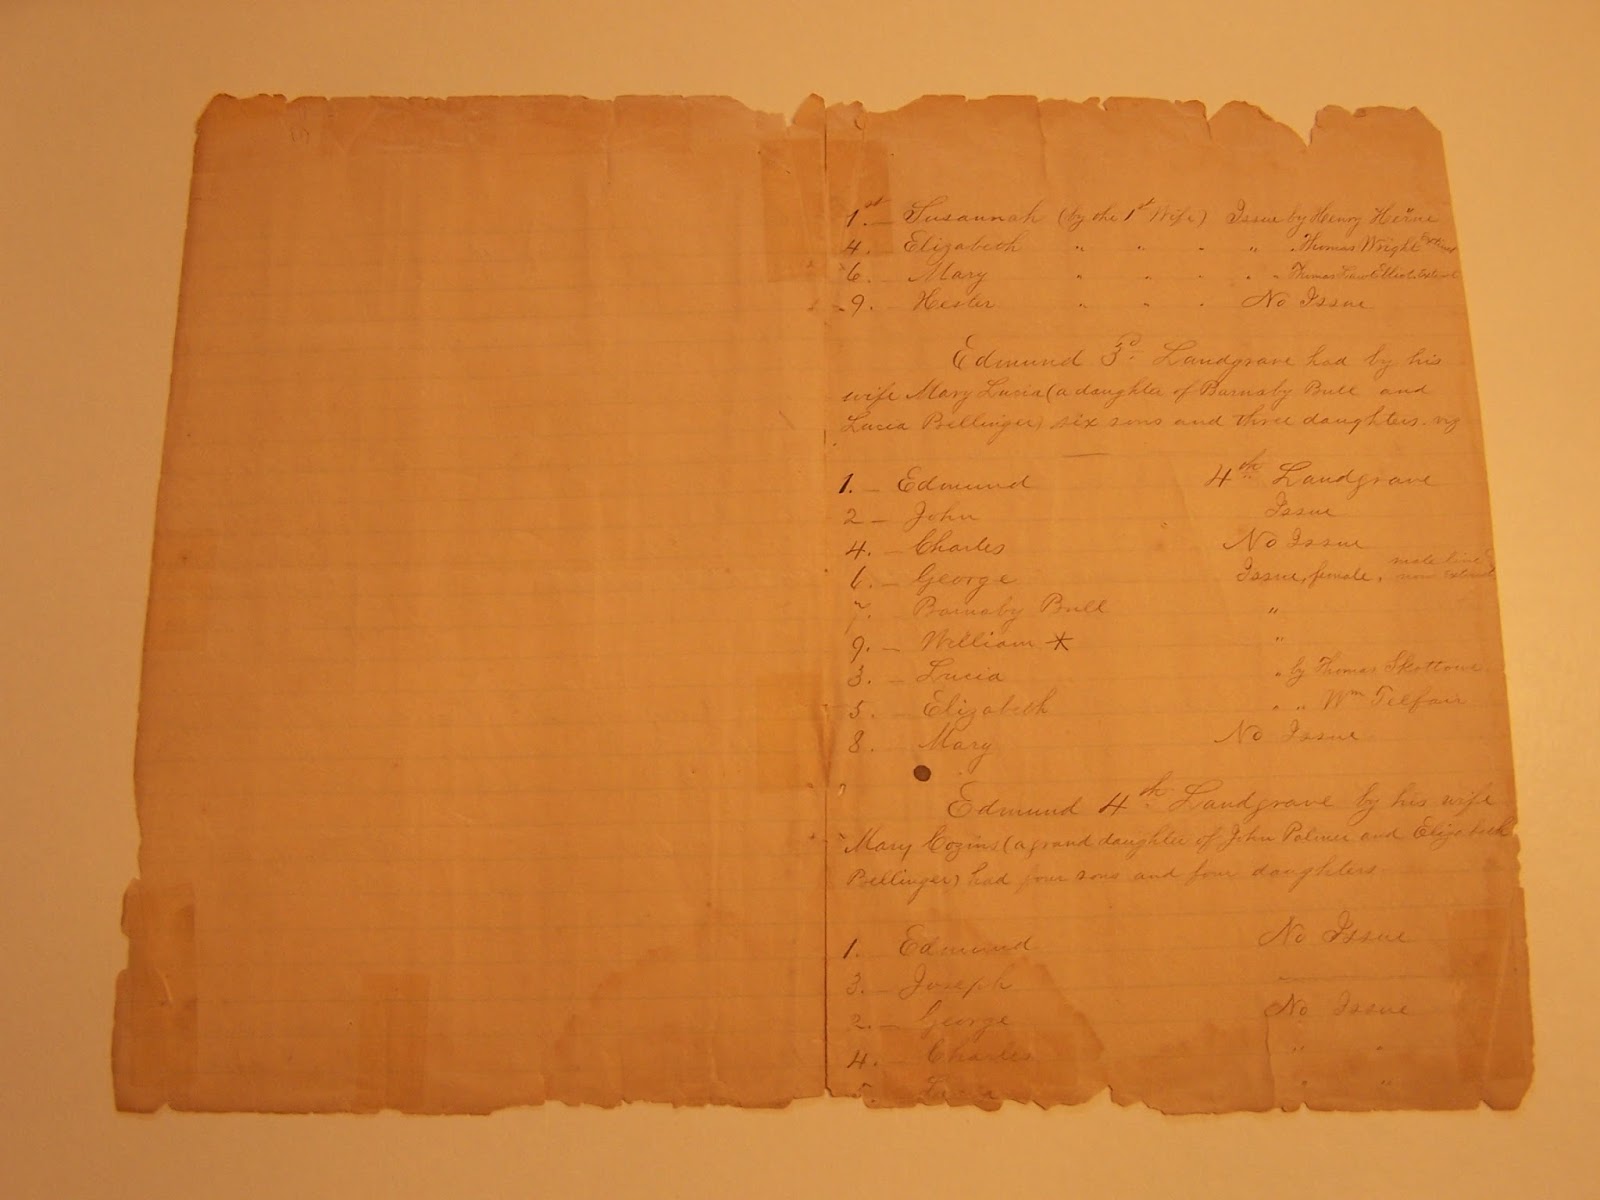 1st — Susannah (by the 1st Wife) Issue by Henry Herne
4. — Elizabeth " " " " Thomas Wright Extinct
6. — Mary " " " " " Thomas Law Elliot Extinct
9. — Hester " " " No Issue
Edmund 3d Landgrave had by his
wife Mary Lucia (a daughter of Barnaby Bull and
Lucia Bellinger) six sons and three daughters. viz
1. — Edmund 4th Landgrave
2 — John Issue
4. — Charles No Issue
6. — George Issue, female, male line now extinct
7. Barnaby Bull "
9. — William * "
3. — Lucia " by Thomas Skottowe
5. — Elizabeth " " Wm Telfair
8. Mary No Issue
Edmund 4th Landgrave by his wife
Mary Cozins (a grand daughter of John Palmer and Elizabeth
Bellinger) had four sons and four daughters.
1. Edmund No Issue
3. — Joseph —
2. — George No Issue
4. — Charles " "
5. Lucia " "